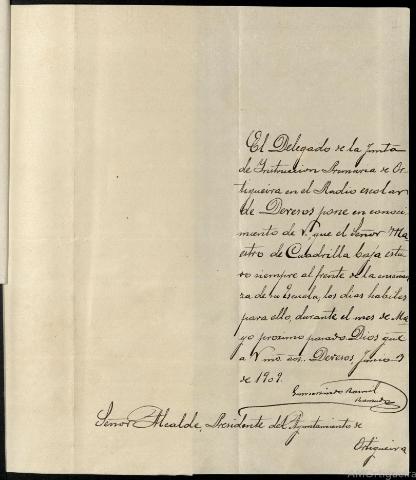 El Delegado de la Junta
de Instruccion Primaria de Or-
tigueira en el Radio escolar
de Devesos pone en conoci-
miento de V. que el Señor Ma
estro de Cuadrilla Caja estu
vo siempre al frente de la enseñan
za de su Escuela, los dias habiles
para ello, durante el mes de Ma
yo proximo pasado. Dios gue
a V. ms. añs. Devesos, Junio
de 1909.
Señor Alcalde, Presidente del Ayuntamiento de
Ortigueira
AMOrtigueira